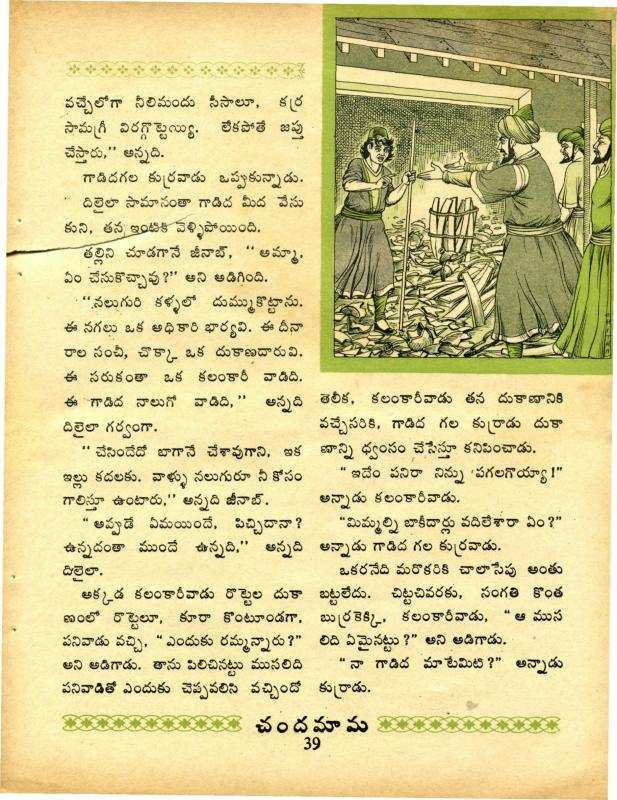 వచ్చేలోగా నీలిమందు సీసాలూ, కర్ర
సామగ్రీ విరగ్గొట్టెయ్యి. లేకపోతే జప్తు
చేస్తారు,'' అన్నది.
గాడిదగల కుర్రవాడు ఒప్పుకున్నాడు.
దిలైలా సామానంతా గాడిద మీద వేసు
కుని, తన ఇంటికి వెళ్ళిపోయింది.
తల్లిని చూడగానే జీనాబ్, ''అమ్మా,
ఏం చేసుకొచ్చావు?'' అని అడిగింది.
''నలుగురి కళ్ళలో దుమ్ముకొట్టాను.
ఈ నగలు ఒక అధికారి భార్యవి. ఈ దీనా
రాల సంచీ, చొక్కా ఒక దుకాణదారువి.
ఈ సరుకంతా ఒక కలంకారీ వాడిది.
ఈ గాడిద నాలుగో వాడిది,'' అన్నది
దిలైలా గర్వంగా.
''చేసిందేదో బాగానే చేశావుగాని, ఇక
ఇల్లు కదలకు. వాళ్ళు నలుగురూ నీ కోసం
గాలిస్తూ ఉంటారు,'' అన్నది జీనాబ్.
''అప్పుడే ఏమయిందే, పిచ్చిదానా?
ఉన్నదంతా ముందే ఉన్నది,'' అన్నది
దిలైలా.
అక్కడ కలంకారీవాడు రొట్టెల దుకా
ణంలో రొట్టెలూ, కూరా కొంటూండగా,
పనివాడు వచ్చి, ''ఎందుకు రమ్మన్నారు?''
అని అడిగాడు. తాను పిలిచినట్టు ముసలిది
పనివాడితో ఎందుకు చెప్పవలసి వచ్చిందో
తెలీక, కలంకారీవాడు తన దుకాణానికి
వచ్చేసరికి, గాడిద గల కుర్రాడు దుకా
ణాన్ని ధ్వంసం చేసేస్తూ కనిపించాడు.
''ఇదేం పనిరా నిన్ను పగలగొయ్యా!''
అన్నాడు కలంకారీవాడు.
''మిమ్మల్ని బాకీదార్లు వదిలేశారా ఏం?''
అన్నాడు గాడిద గల కుర్రవాడు.
ఒకరనేది మరొకరికి చాలాసేపు అంతు
బట్టలేదు. చిట్టచివరకు, సంగతి కొంత
బుర్రకెక్కి, కలంకారీవాడు, ''ఆ ముస
లిది ఏమైనట్టు?'' అని అడిగాడు.
''నా గాడిద మాటేమిటి?'' అన్నాడు
కుర్రాడు.
చందమామ
39